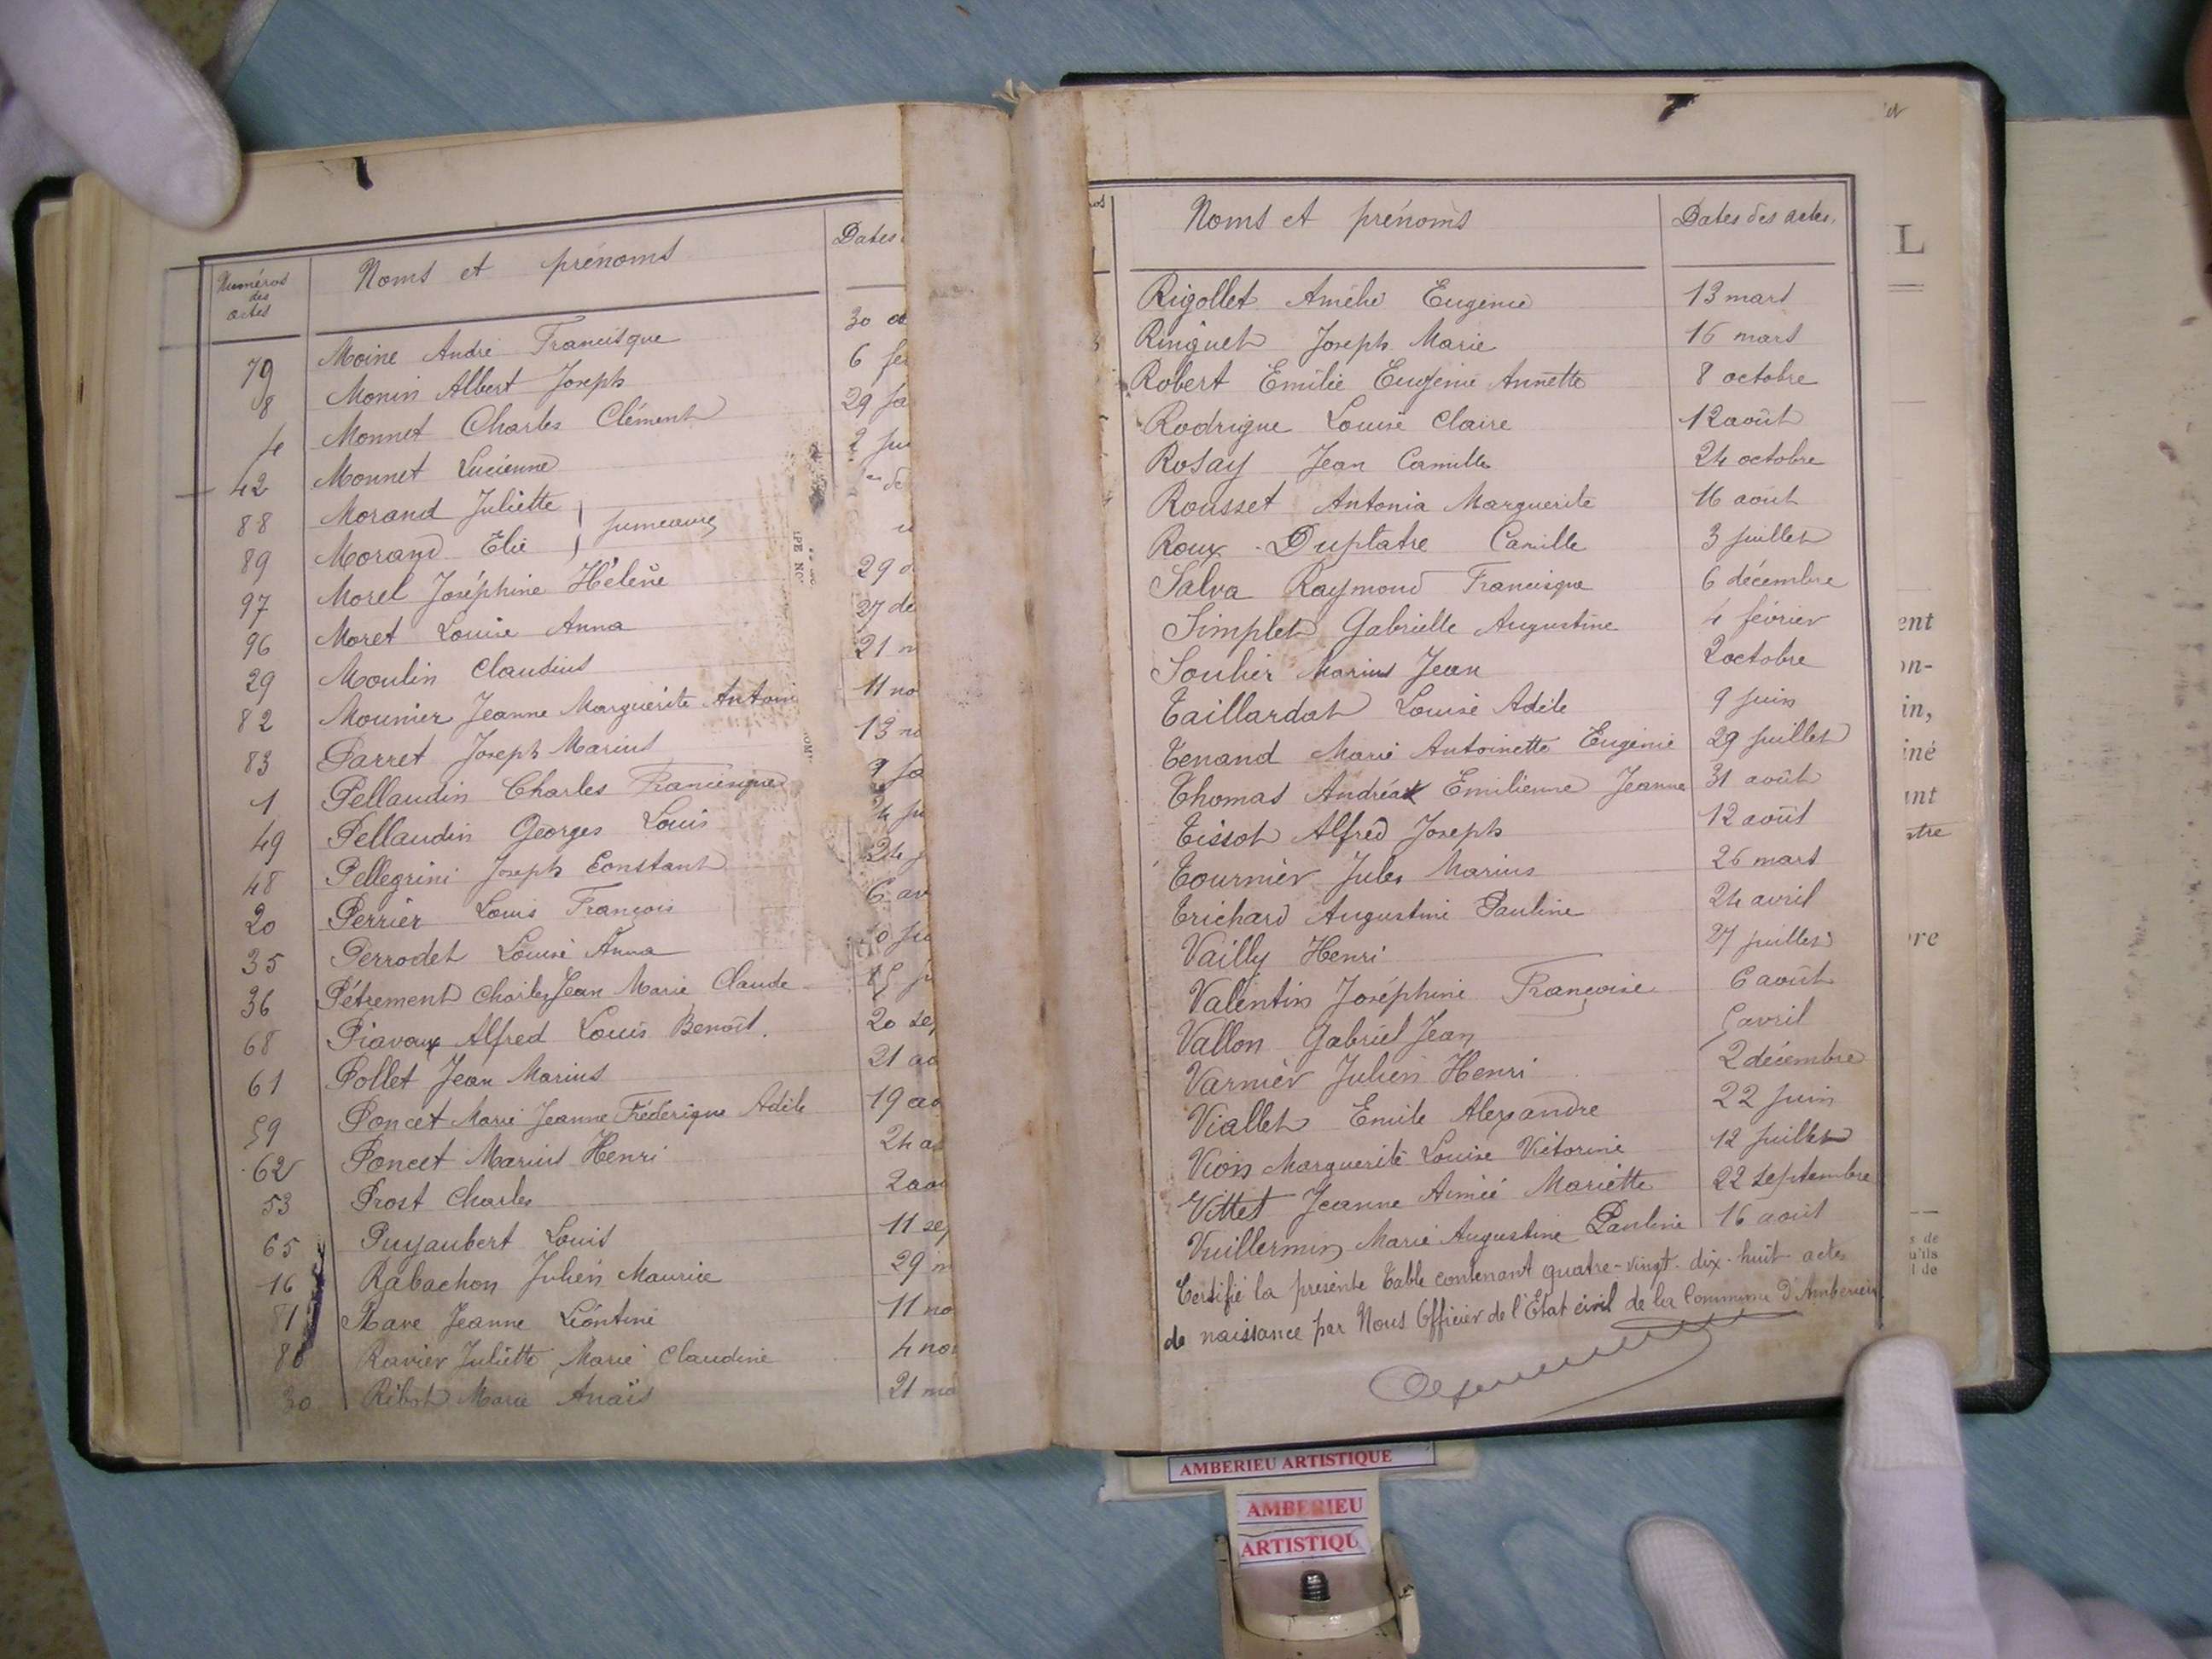 Numéros des actes Noms et prénoms Dates
79 Moine André Francisque 30
8 Monin Albert Joseph 6
4 Monnet Charles Clément 29
42 Monnet Lucienne 2
88 Morand Juliette
89 Morand Elie jumeaux
97 Morel Joséphine Hélène 29
96 Moret Louise Anna 27 dé
29 Moulin Claudius 21 m
82 Mounier Jeanne Marguerite Antoni 11 no
83 Parret Joseph Marius 13 no
1 Pellaudin Charles Francisque 9 ja
49 Pellaudin Georges Louis 4 ju
48 Pellegrini Joseph Constant 24 j
20 Perrier Louis François 6 av
35 Perrodet Louise Anna
36 Pétrement Charles Jean Marie Claude
68 Piavoux Alfred Louis Benoît. 20 se
61 Pollet Jean Marius 21 ao
59 Poncet Marie Jeanne Fréderique Adèle 19 ao
62 Poncet Marius Henri 24 a
53 Prost Charles 2 aou
65 Puyaubert Louis 11 se
16 Rabachon Julien Maurice 29 m
81 Rave Jeanne Léontine 11 no
80 Ravier Juliette Marie Claudine 4 no
30 Ribot Marie Anaïs 21 ma
Noms et prénoms Dates des actes.
Rigollet Amélie Eugénie 13 mars
Ringuet Joseph Marie 16 mars
Robert Emilie Eugénie Annette 8 octobre
Rodrigue Louise Claire 12 août
Rosay Jean Camille 24 octobre
Rousset Antonia Marguerite 16 août
Roux-Duplatre Camille 3 juillet
Salva Raymond Francisque 6 décembre
Simplet Gabrielle Augustine 4 février
Soulier Marius Jean 2 octobre
Taillardat Louise Adèle 9 juin
Tenand Marie Antoinette Eugénie 29 juillet
Thomas Andréa Emilienne Jeanne 31 août
Tissot Alfred Joseph 12 août
Tournier Jules Marius 26 mars
Trichard Augustine Pauline 24 avril
Vailly Henri 27 juillet
Valentin Joséphine Françoise 6 août
Vallon Gabriel Jean avril
Varnier Julien Henri 2 décembre
Viallet Emile Alexandre 22 juin
Vion Marguerite Louise Victorine 12 juillet
Vittet Jeanne Aimée Mariette 22 septembre
Vuillermin Marie Augustine Pauline 16 août
Certifié la présente Table contenant quatre-vingt-dix-huit actes
de naissance par Nous Officier de l'Etat civil de la Commune d'Ambérieu
L
ent
on-
in,
iné
ant
re
u'ils
AMBERIEU ARTISTIQUE
AMBERIEU
ARTISTIQU